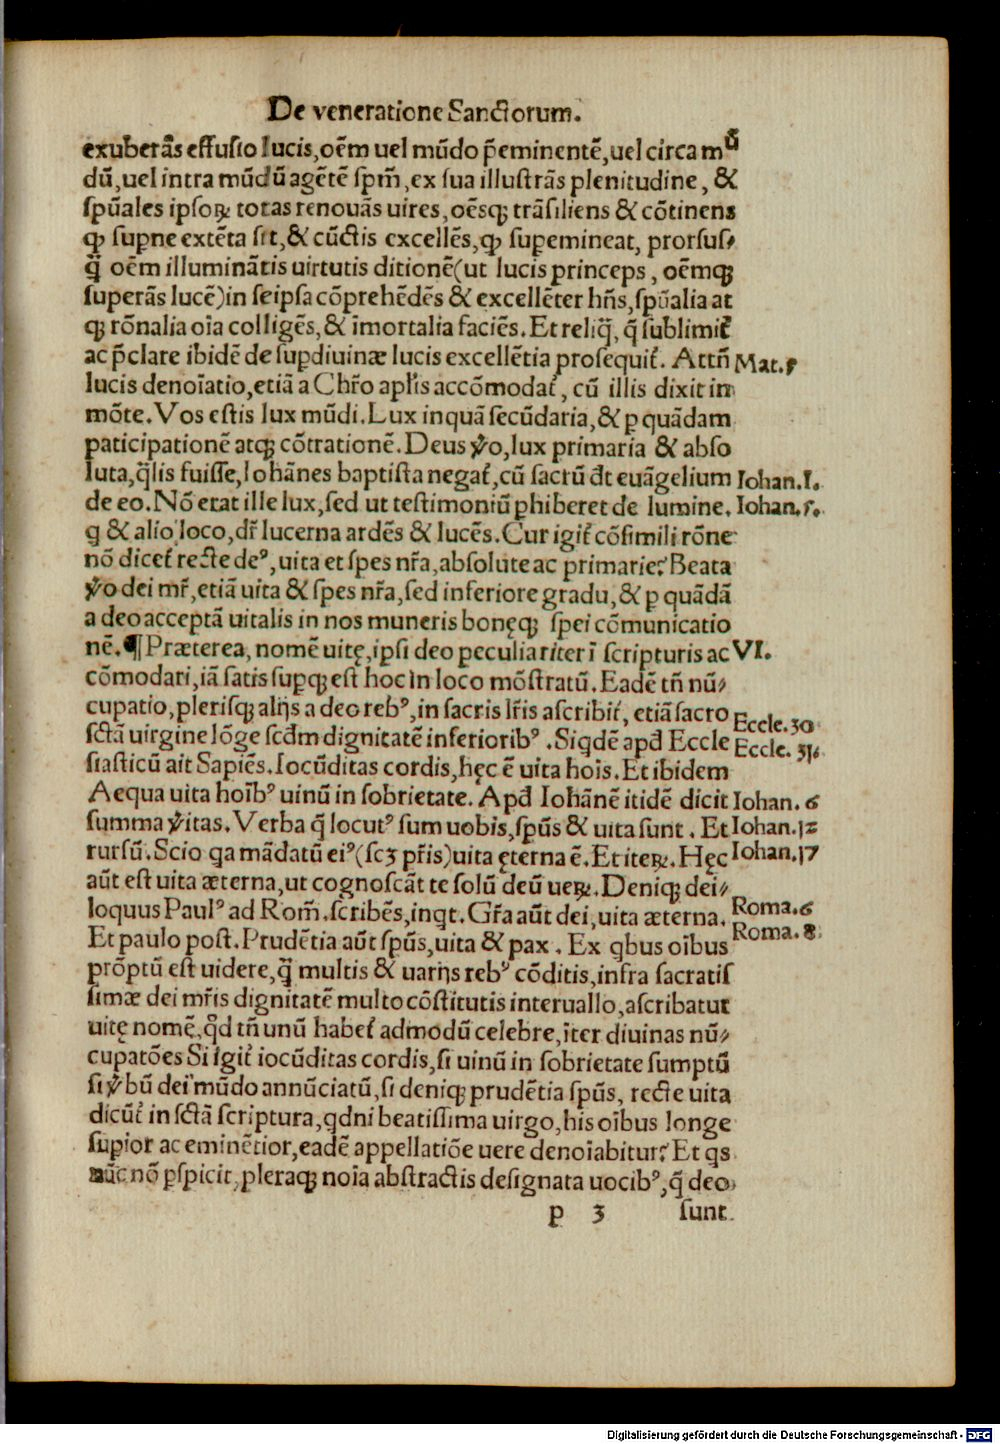 De veneratione Sanctorum.
exuberãs effusio lucis,oẽm uel mũdo p̃eminentẽ,uel circa mũ
dũ,uel intra mũdũ agẽtẽ spm̃,ex sua illustrãs plenitudine, &
spũales ipsoꝝ totas renouãs uires,oẽsqꝫ trãsiliens & cõtinens
ꝙ supne extẽta sit,& cũctis excellẽs,ꝙ supemineat, prorsus⸗
q̃ oẽm illuminãtis uirtutis ditionẽ(ut lucis princeps, oẽmqꝫ
superãs lucẽ)in seipsa cõprehẽdẽs & excellẽter hñs,spũalia at
qꝫ rõnalia oĩa colligẽs,& ĩmortalia faciẽs. Et reliq̃, q̃ sublimiť
ac p̃clare ibidẽ de supdiuinæ lucis excellẽtia prosequiť. Attñ Mat.5
lucis denoĩatio,etiã a Chr̃o apl̃is accõmodať, cũ illis dixit in
mõte. Vos estis lux mũdi. Lux inquã secũdaria,& ꝑ quãdam
ꝑticipationẽ atqꝫ cõtrationẽ. Deus ṽo,lux primaria & abso
luta,q̃lis fuisse,Iohãnes baptista negať,cũ sacrũ dt̃ euãgelium Iohan.I.
de eo. Nõ erat ille lux,sed ut testimoniũ phiberet de lumine. Iohan.5.
q & alio loco,dr̃ lucerna ardẽs & lucẽs. Cur igiť cõsimili rõne
nõ diceť recte deꝰ,uita et spes nr̃a,absolute ac primarie? Beata
ṽo dei mr̃,etiã uita & spes nr̃a,sed inferiore gradu,& ꝑ quãdã
a deo acceptã uitalis in nos muneris bonęqꝫ spei cõmunicatio
nẽ.¶ Præterea, nomẽ uitę,ipsi deo peculiariter ĩ scripturis ac VI.
cõmodari,iã satis supqꝫ est hoc in loco mõstratũ. Eadẽ tñ nũ⸗
cupatio,plerisqꝫ alijs a deo rebꝰ,in sacris lr̃is ascribiť, etiã sacro
sctã uirgine lõge scd̃m dignitatẽ inferioribꝰ. Siqdẽ apd̃ Eccle Eccle.30
siasticũ ait Sapiẽs. Iocũditas cordis,hęc ẽ uita hoĩs. Et ibidem Eccle.31.
Aequa uita hoĩbꝰ uinũ in sobrietate. Apd̃ Iohãnẽ itidẽ dicit Iohan.6
summa ṽitas. Verba q̃ locutꝰ sum uobis,spũs & uita sunt. Et Iohan.12
rursũ. Scio qa mãdatũ eiꝰ(scꝫ pr̃is)uita ęterna ẽ. Et iteꝝ. Hęc Iohan.17
aũt est uita æterna,ut cognoscãt te solũ deũ ueꝝ. Deniqꝫ dei⸗
loquus Paulꝰ ad Rom̃. scribẽs,inqt. Gr̃a aũt dei,uita æterna. Roma.6
Et paulo post. Prudẽtia aũt spũs,uita & pax. Ex qbus oĩbus Roma.8.
prõptũ est uidere,q̃ multis & uarijs rebꝰ cõditis,infra sacratis
simæ dei mr̃is dignitatẽ multo cõstitutis interuallo,ascribatur
uitę nomẽ,qd̃ tñ unũ habeť admodũ celebre,ĩter diuinas nũ⸗
cupatões Si igiť iocũditas cordis,si uinũ in sobrietate sumptũ
si ṽbũ dei mũdo annũciatũ,si deniqꝫ prudẽtia spũs, recte uita
dicũť in sctã scriptura,qdni beatissima uirgo,his oĩbus longe
supior ac eminẽtior,eadẽ appellatiõe uere denoĩabitur? Et qs
nũc nõ pspicit,pleraqꝫ noĩa abstractis designata uocibꝰ,q̃ deo
p 3 sunt
Digitalisierung gefördert durch die Deutsche Forschungsgemeinschaft - DFG